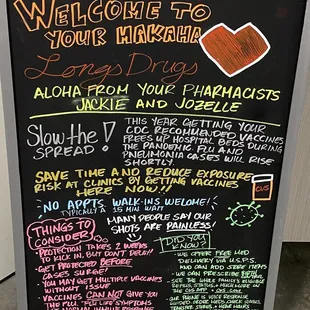 WELCOME TO
YOUR MAKAHA
Longs Drugs
ALOHA FROM YOUR PHARMACISTS
JACKIE AND JOZELLE
Slow the
SPREAD!
THIS YEAR GETTING YOUR
CDC RECOMMENDED VACCINES
FREES UP HOSPITAL BEDS DURING
THE PANDEMIC. FLU AND
PNEUMONIA CASES WILL RISE
SHORTLY.
SAVE TIME AND REDUCE EXPOSURE
RISK AT CLINICS BY GETTING VACCINES
HERE NOW!!
CVS
NO APPTS WALK-INS WELOME!
TYPICALLY A 15 MIN WAIT
MANY PEOPLE SAY OUR
SHOTS ARE PAINLESS!
THINGS TO
CONSIDER:
PROTECTION TAKES 2 WEEKS
TO KICK IN, BUT DON'T DELAY!
GET PROTECTED BEFORE
CASES SURGE!
YOU MAY GET MULTIPLE VACCINES
WITHOUT ISSUE
VACCINES CANNOT GIVE YOU
THE FLU. FLU LIKE SYMPTOMS
DID YOU
KNOW?
WE OFFER FREE MED
DELIVERY VIA U.S.P.S.
AND CAN ADD STORE ITEMS
WE CAN PRESCRIBE
SEE THE WHOLE FAMILY'S
REFILLS, STATUS, & MUCH MORE ON
THE CVS APP OR CVS.COM
OUR PHONE IS VOICE RESPONSE